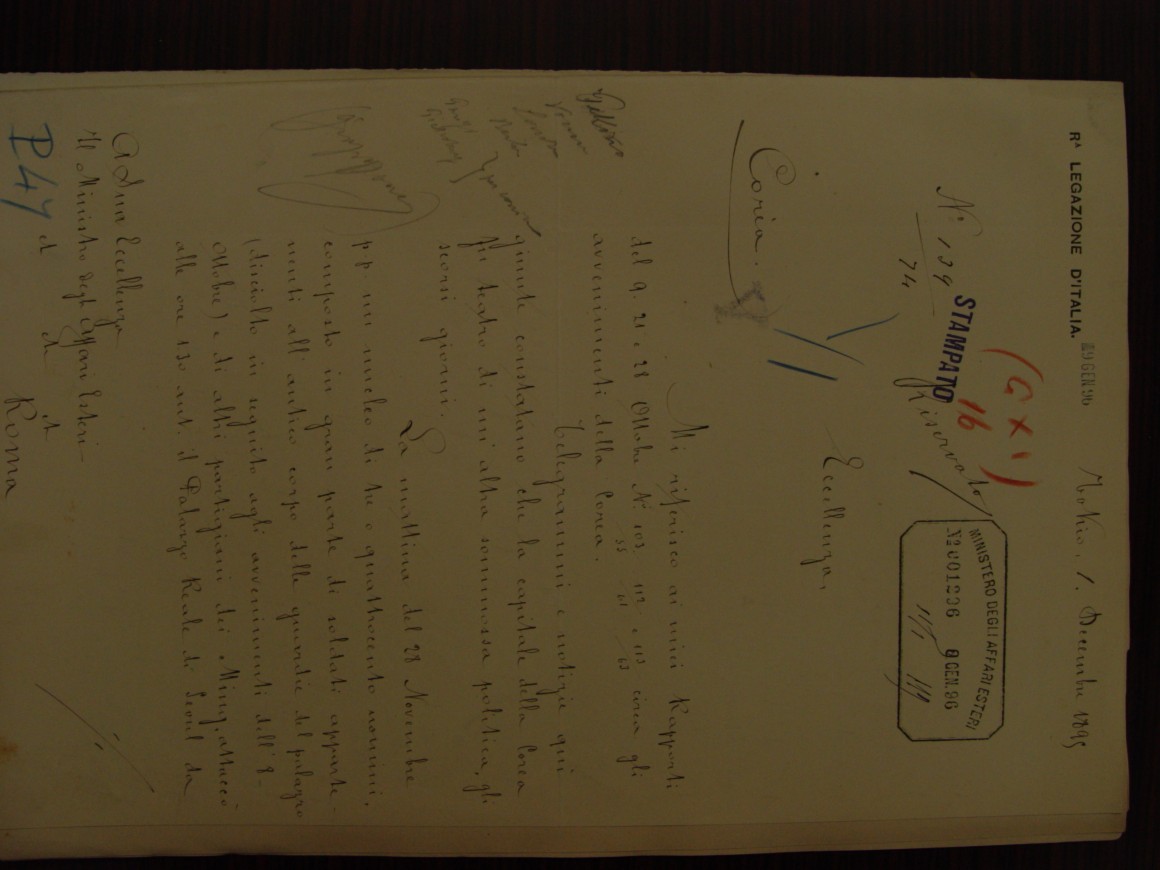 Rª LEGAZIONE D'ITALIA.
29 GEN 96
Tokio. 1. Decembre 1895
(G X')
16
Nº 139
74
STAMPATO
Riservato
MINISTERO DEGLI AFFARI ESTERI
Nº 001236 8 GEN. 96
Corea.
Eccellenza,
Mi riferisco ai miei Rapporti
del 9. 21 e 28 Ottobre Nº 103 112 e 113 circa gli
55 61 63
avvenimenti della Corea.
Telegrammi e notizie qui
giunte constatano che la capitale della Corea
fu teatro di un'altra sommossa politica, gli
scorsi giorni.
La mattina del 28 Novembre
pp. un nucleo di tre o quattrocento uomini,
composto in gran parte di soldati apparte-
nenti all'antico corpo delle guardie del palazzo
(disciolto in seguito agli avvenimenti dell'8-
Ottobre) e di altri partigiani dei Ming, attaccò
alle ore 1.30 ant. il Palazzo Reale di Seoul da
A Sua Eccellenza
Il Ministro degli Affari Esteri-
P.47
Roma